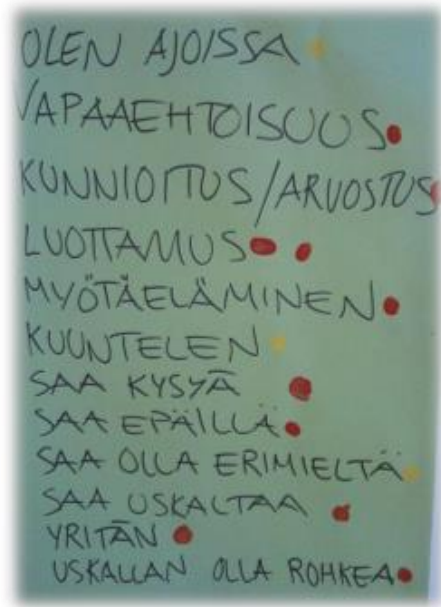 OLEN AJOISSA
VAPAAEHTOISUUS
KUNNIOITUS/ARVOSTUS
LUOTTAMUS
MYÖTÄELÄMINEN
KUUNTELEN
SAA KYSYÄ
SAA EPÄILLÄ
SAA OLLA ERIMIELTÄ
SAA USKALTAA
YRITÄN
USKALLAN OLLA ROHKEA